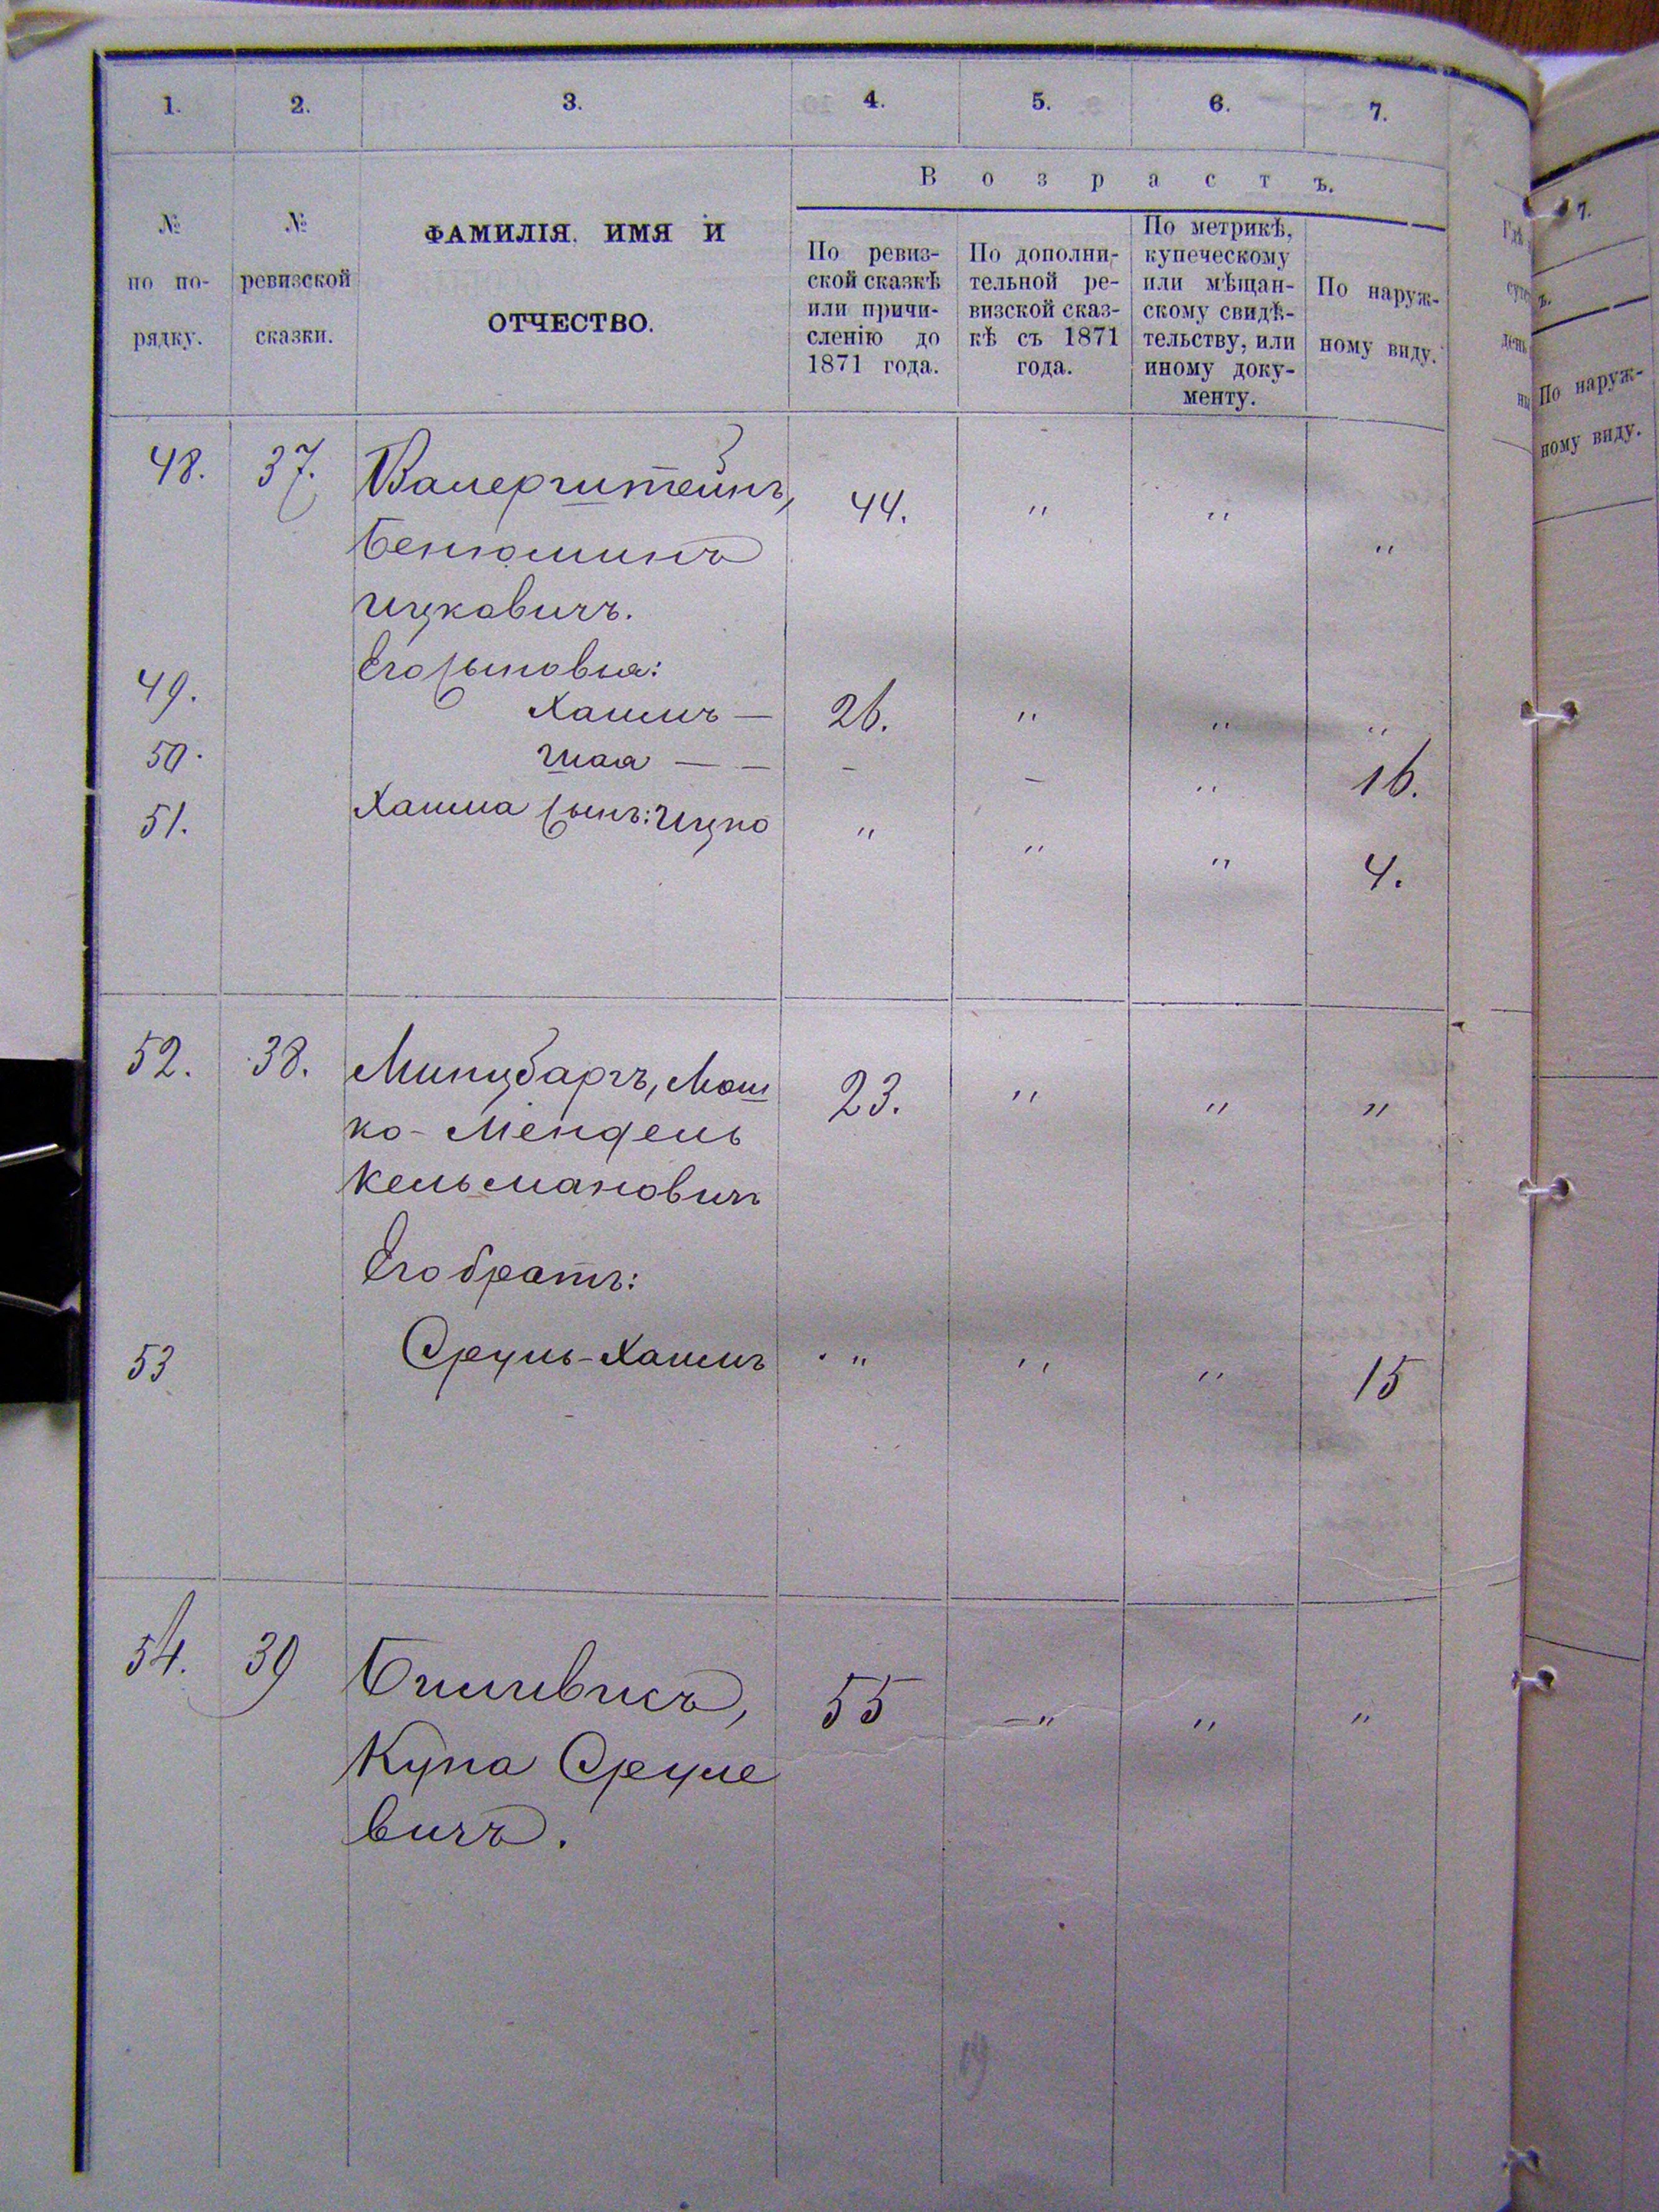 1. 2. 3. 4. 5. 6. 7.
№ по по-рядку.
№ ревизской сказки.
ФАМИЛІЯ, ИМЯ И
ОТЧЕСТВО.
Возрастъ.
По ревиз-
ской сказкѣ
или причи-
сленію до
1871 года.
По дополни-
тельной ре-
визской сказ-
кѣ съ 1871
года.
По метрикѣ,
купеческому
или мѣщан-
скому свидѣ-
тельству, или
иному доку-
менту.
По наруж-
ному виду.
48. 37. Валерштейнъ, 44. " " "
Бенюминъ
Ицковичъ.
Его сыновья:
49. Хаимъ — 26. " " "
50. Шая — — - - " 16.
51. Хаима сынъ: Ицко " " " 4.
52. 38. Минцбаргъ, Мош 23. " " "
ко-Мендель
Кельмановичъ
Его братъ:
53 Сруль-Хаимъ " " " 15
54. 39 Биливисъ, 55 " " "
Купа Сруле
вичъ.
19
7.
По наруж-
ному виду.